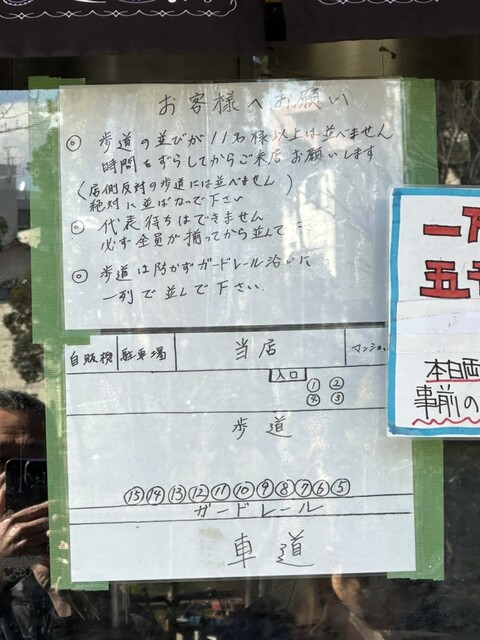 お客様へお願い
◎ 歩道の並びが11名様以上は並べません
時間をずらしてからご来店お願いします
(店側反対の歩道には並べません)
絶対に並ばないで下さい
◎ 代表待ちはできません
必ず全員が揃ってから並んで
◎ 歩道は防がずガードレール沿いに
一列で並んで下さい.
自販機 駐車場 当店 マンション
入口
① ②
④ ③
歩道
⑮⑭⑬⑫⑪⑩⑨⑧⑦⑥⑤
ガードレール
車道
一万
五千
本日両
事前の